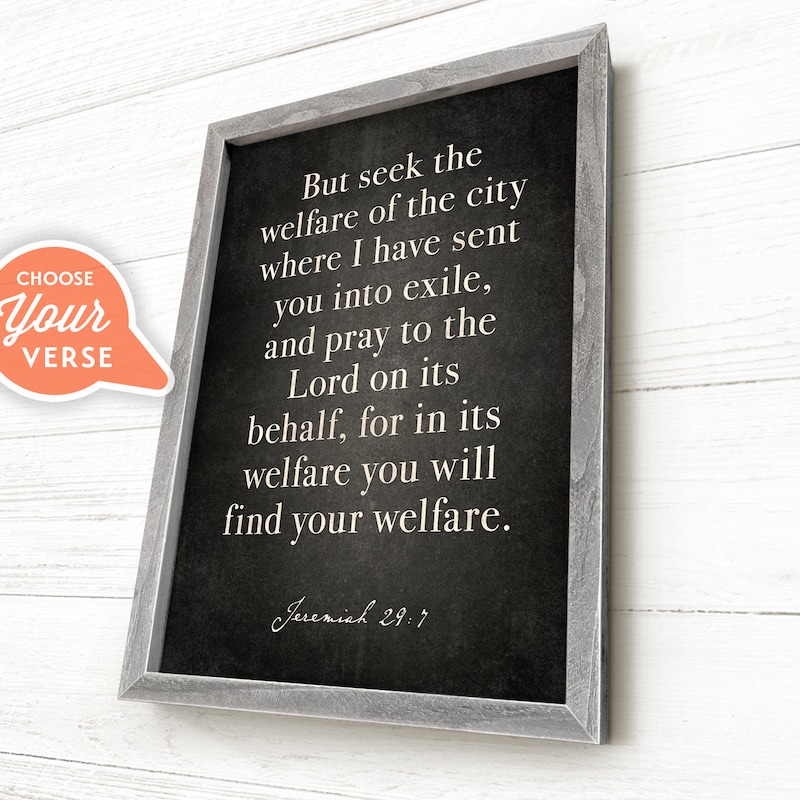 But seek the
welfare of the city
where I have sent
you into exile,
and pray to the
Lord on its
behalf, for in its
welfare you will
find your welfare.
Jeremiah 29:7
CHOOSE
Your
VERSE